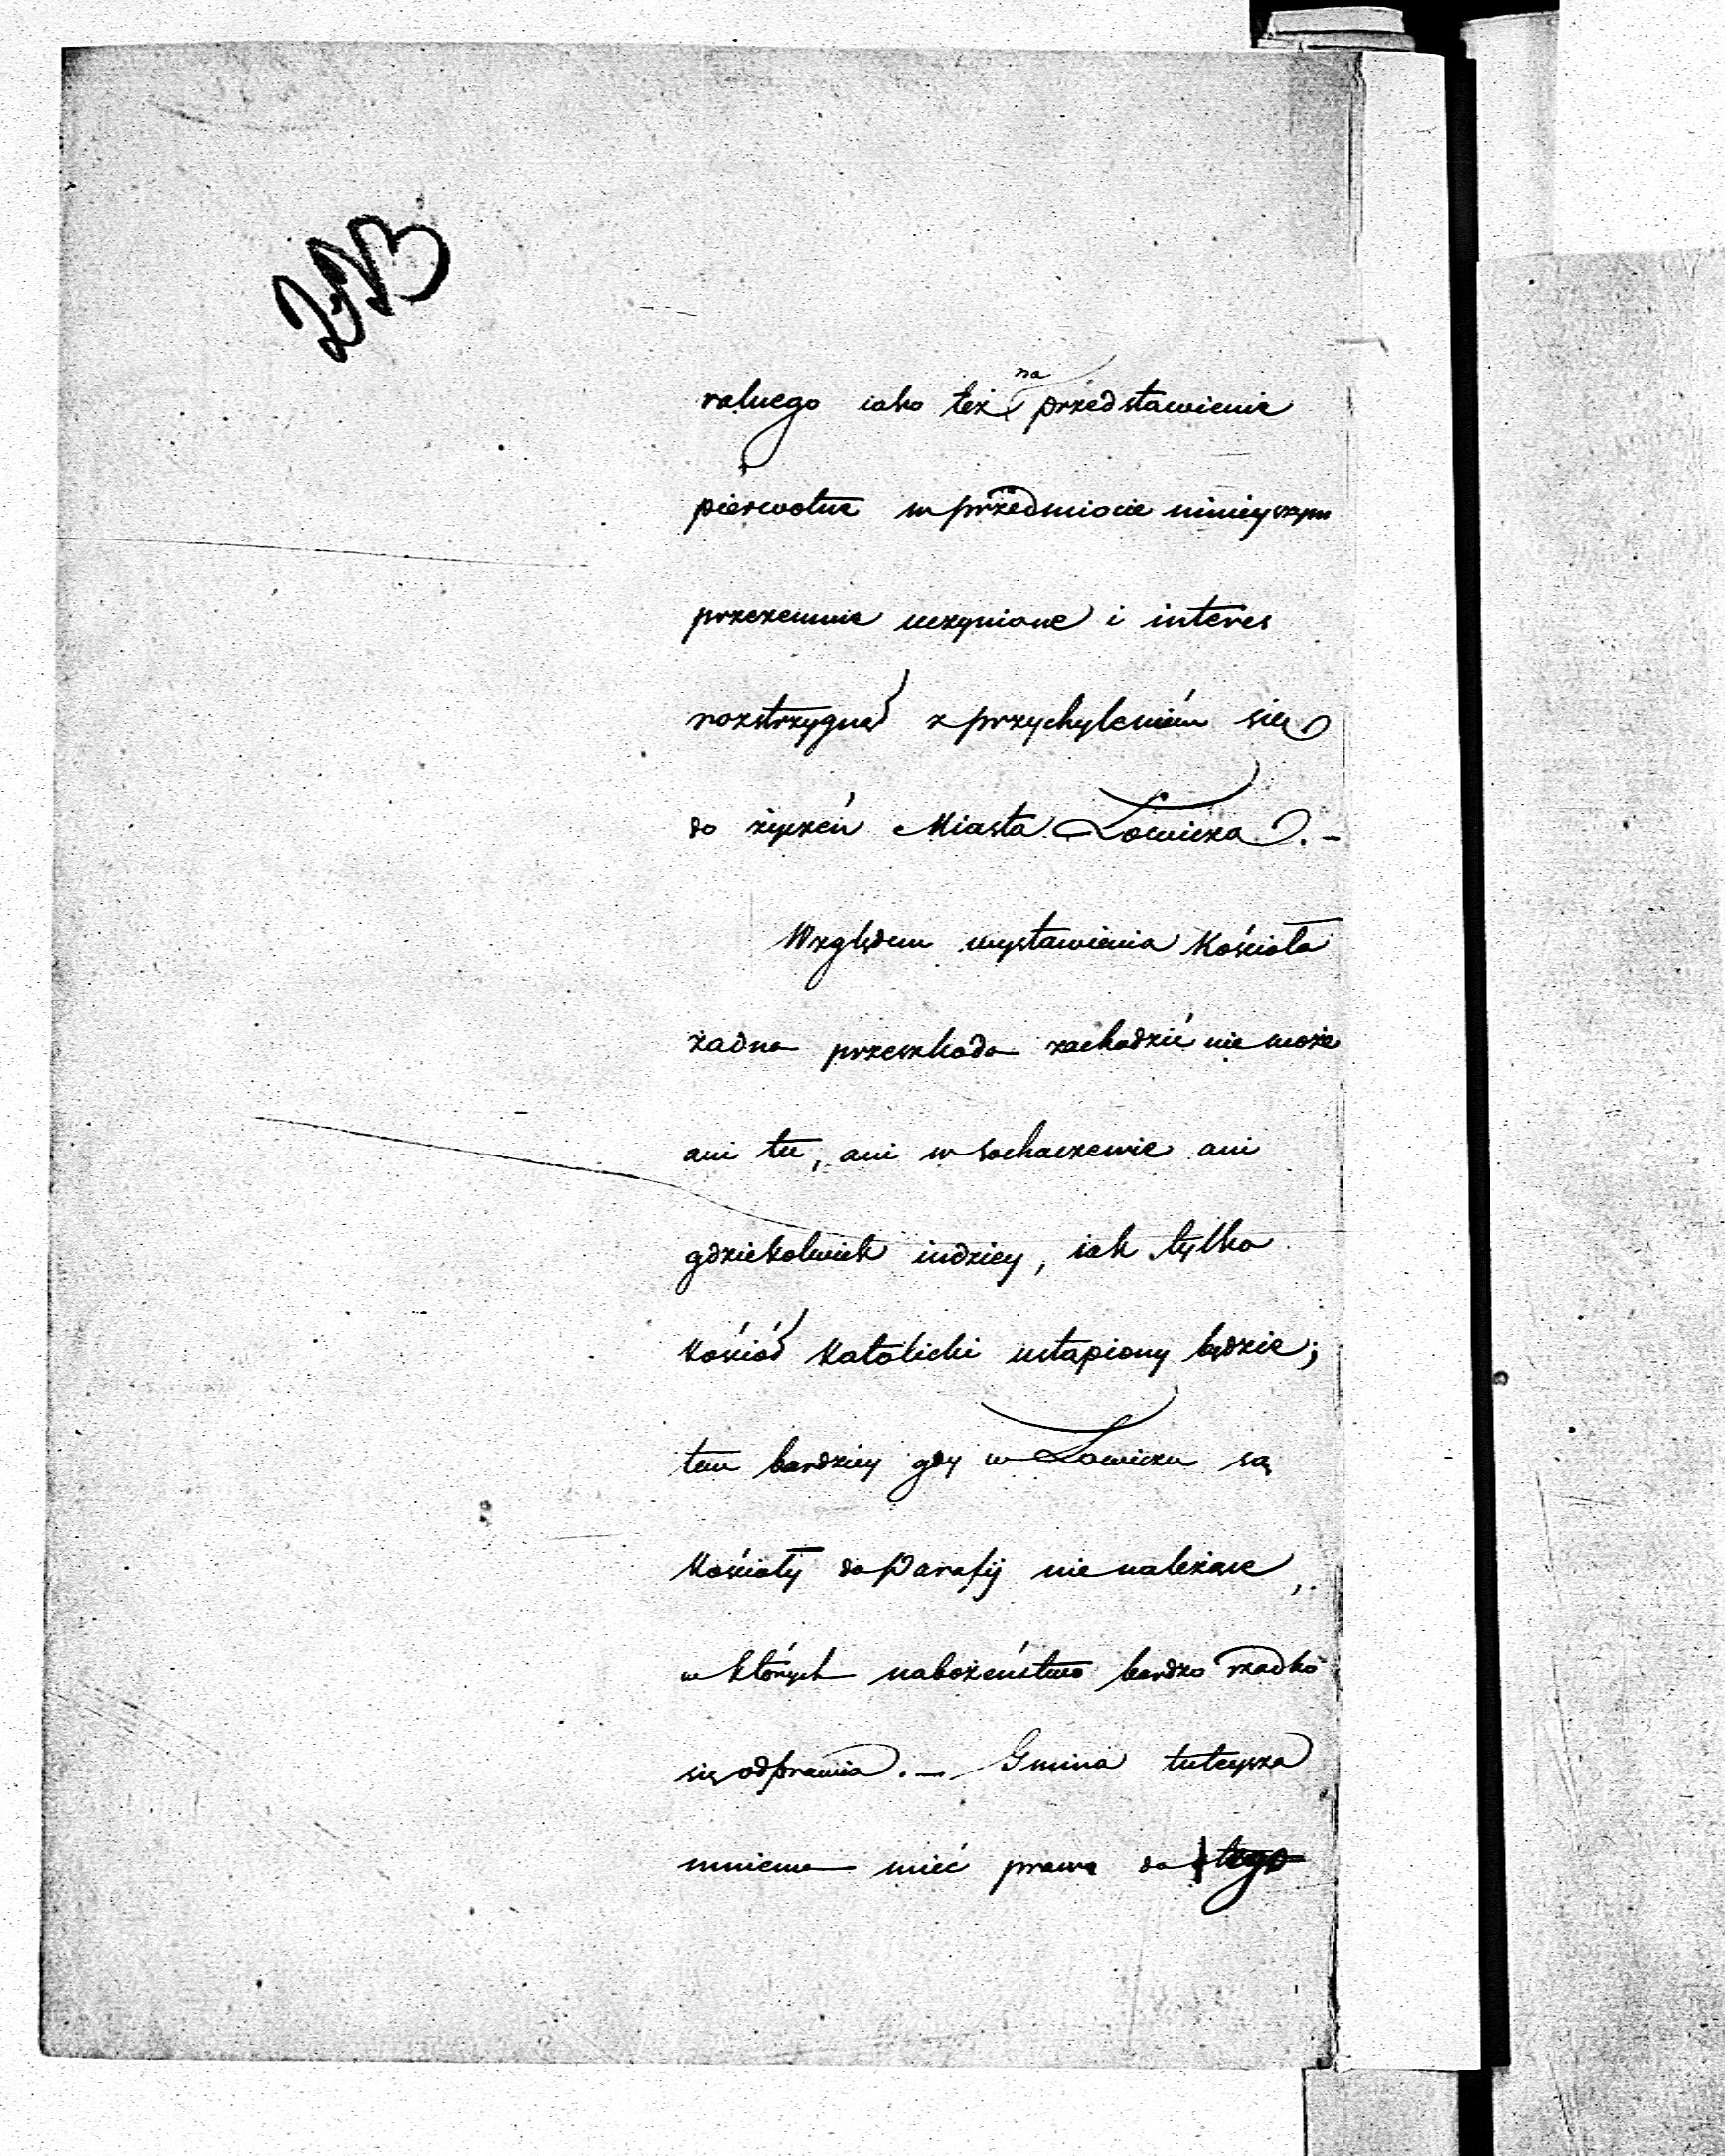 ralnego iako też na przedstawienie
pierwotne w przedmiocie ninieyszym
przezemnie uczynione i interes
rozstrzygnąć z przychyleniem się
do życzeń Miasta Łowicza. –
Względem wystawienia Kościoła
żadna przeszkoda zachodzić nie może
ani tu, ani w Sochaczewie ani
gdziekolwiek indziey, iak tylko
Kościół Katolicki ustąpiony będzie;
tem bardziey gdy w Łowiczu są
Kościoły do Parafij nie należące,
w których nabożeństwo bardzo rzadko
się odprawia. – Gmina tuteysza
mniema mieć prawo do tego